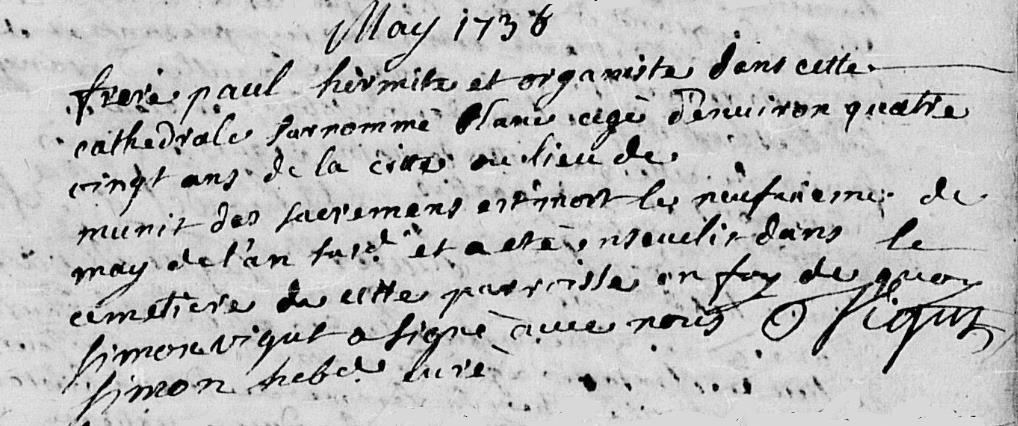 May 1738
frere paul hermite et organiste dans cette
cathedrale surnommé Blanc agé d'environ quatre
vingt ans de la citté ou lieu de
munit des sacremens est mort le neufvieme de
may de l'an susd. et a esté ensevelit dans le
cemetiere de cette parroisse en foy de quoy
simon vigut a signé avec nous Vigut
simon hebd. curé